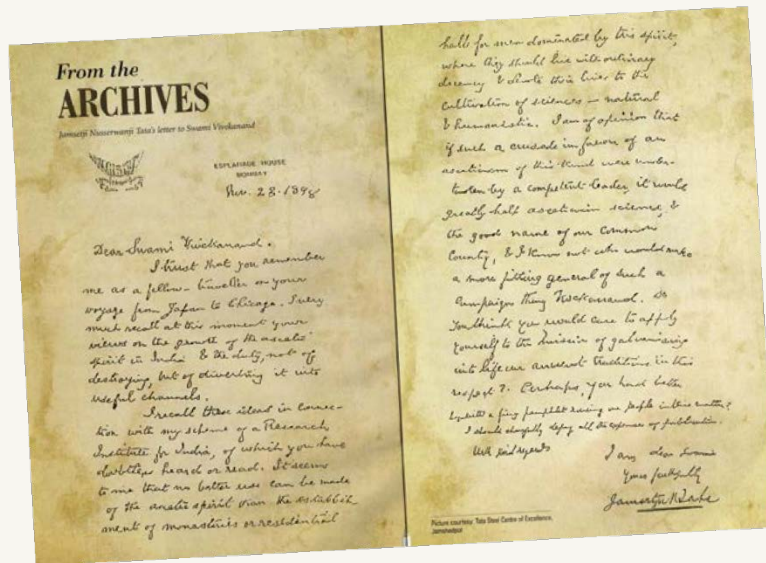 From the
ARCHIVES
Jamsetji Nusserwanji Tata's letter to Swami Vivekanand
ESPLANADE HOUSE
BOMBAY
Nov. 23. 1898
Dear Swami Vivekanand.
I trust that you remember
me as a fellow-traveller on your
voyage from Japan to Chicago. I very
much recall at this moment your
views on the growth of the ascetic
spirit in India & the duty, not of
destroying, but of diverting it into
useful channels.
I recall these ideas in connec-
tion with my scheme of a Research
Institute for India, of which you have
doubtless heard or read. It seems
to me that no better use can be made
of the ascetic spirit than the establish
ment of monasteries or residential
halls for men dominated by this spirit,
where they should live with ordinary
decency & devote their lives to the
cultivation of sciences – natural
& humanistic. I am of opinion that
if such a crusade in favour of an
asceticism of this kind were under-
taken by a competent leader, it would
greatly help asceticism, science, &
the good name of our common
country, & I know not who would make
a more fitting general of such a
campaign than Vivekanand. Do
you think you would care to apply
yourself to the mission of galvanizing
into life our ancient traditions in this
respect? Perhaps, you had better
a fiery pamphlet rousing our people in this matter?
I should cheerfully defray all the expenses of publication.
With kind regards
I am, dear Swami
Yours faithfully
Jamsetji N Tata
Picture courtesy: Tata Steel Centre of Excellence,
Jamshedpur